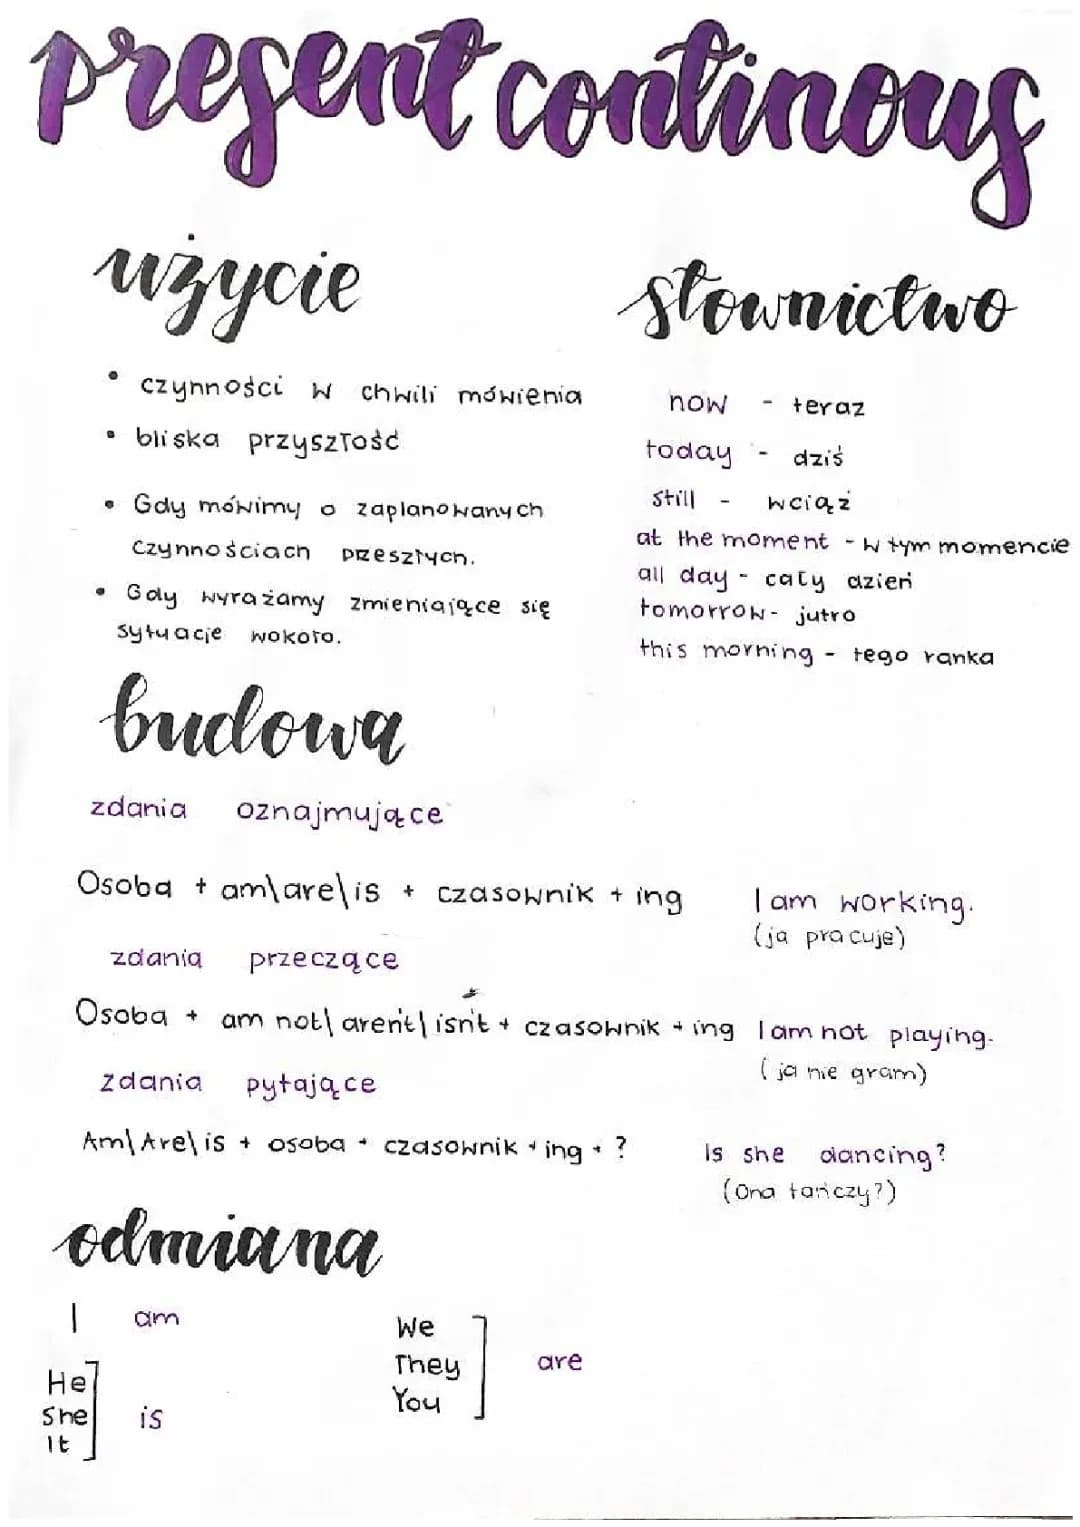 present continous
użycie
słownictwo
• czynności w chwili mówienia
• bliska przyszłość
• Gdy mówimy o zaplanowanych
czynnościach przeszłych.
• Gdy wyrażamy zmieniające się
sytuacje wokoło.
now - teraz
today - dziś
still - wciąż
at the moment - w tym momencie
all day - cały dzień
tomorrow - jutro
this morning - tego ranka
budowa
zdania oznajmujące
Osoba + am\are\is + czasownik + ing
I am working.
(ja pracuje)
zdania przeczące
Osoba + am not\ aren't\ isn't + czasownik + ing
I am not playing.
(ja nie gram)
zdania pytające
Am\Are\is + osoba + czasownik + ing + ?
Is she dancing?
(Ona tańczy?)
odmiana
I am
He
She
It
is
We
They
You
are